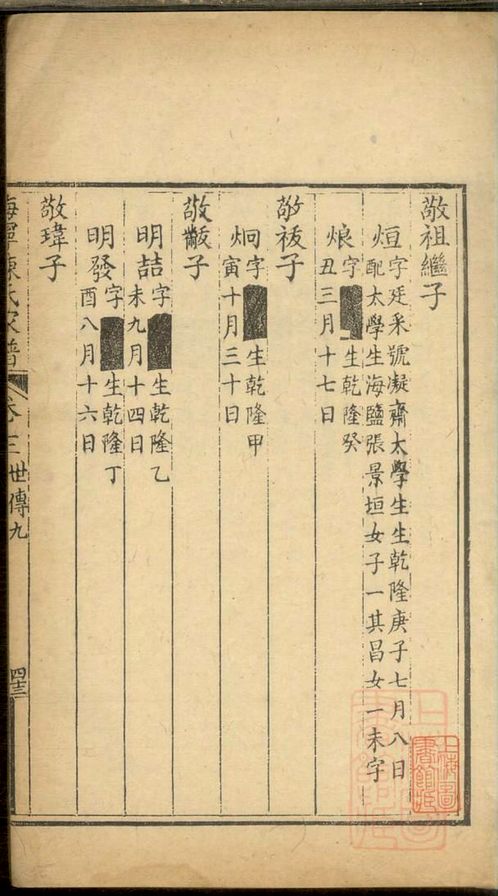 敬祖繼子
烜 字廷采號凝齋太學生生乾隆庚子七月八日
配太學生海鹽張景垣女子一其昌女一未字
烺 字 生乾隆癸
丑三月十七日
敬祓子
炯 字 生乾隆甲
寅十月三十日
敬黻子
明喆 字 生乾隆乙
未九月十四日
明發 字 生乾隆丁
酉八月十六日
敬瑋子
海寧陳氏家譜 卷三 世傳九
上海圖書館藏